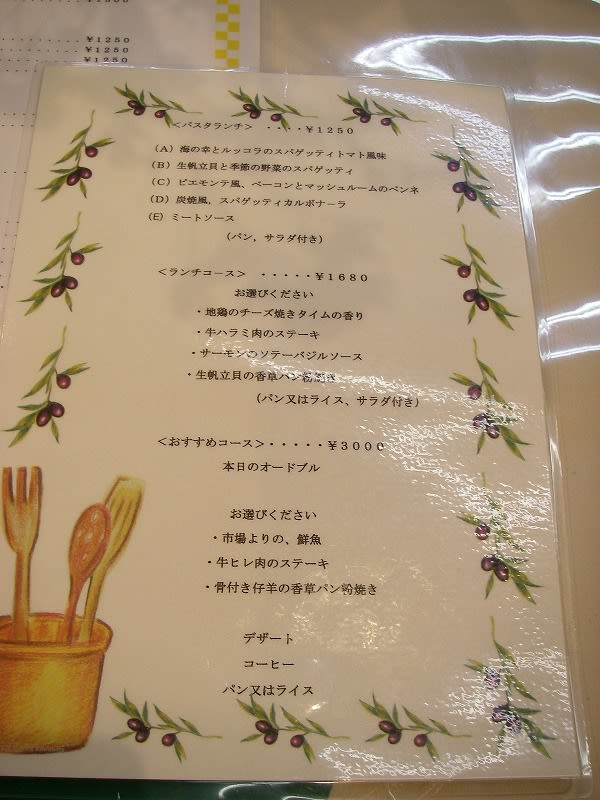 ¥1250
¥1250
¥1250
<パスタランチ> ・・・・¥1250
(A) 海の幸とルッコラのスパゲッティトマト風味
(B) 生帆立貝と季節の野菜のスパゲッティ
(C) ピエモンテ風、ベーコンとマッシュルームのペンネ
(D) 炭焼風，スパゲッティカルボナーラ
(E) ミートソース
(パン，サラダ付き)
<ランチコース> ・・・・・¥1680
お選びください
・地鶏のチーズ焼きタイムの香り
・牛ハラミ肉のステーキ
・サーモンのソテーバジルソース
・生帆立貝の香草パン粉焼き
(パン又はライス、サラダ付き)
<おすすめコース>・・・・・¥3000
本日のオードブル
お選びください
・市場よりの、鮮魚
・牛ヒレ肉のステーキ
・骨付き仔羊の香草パン粉焼き
デザート
コーヒー
パン又はライス